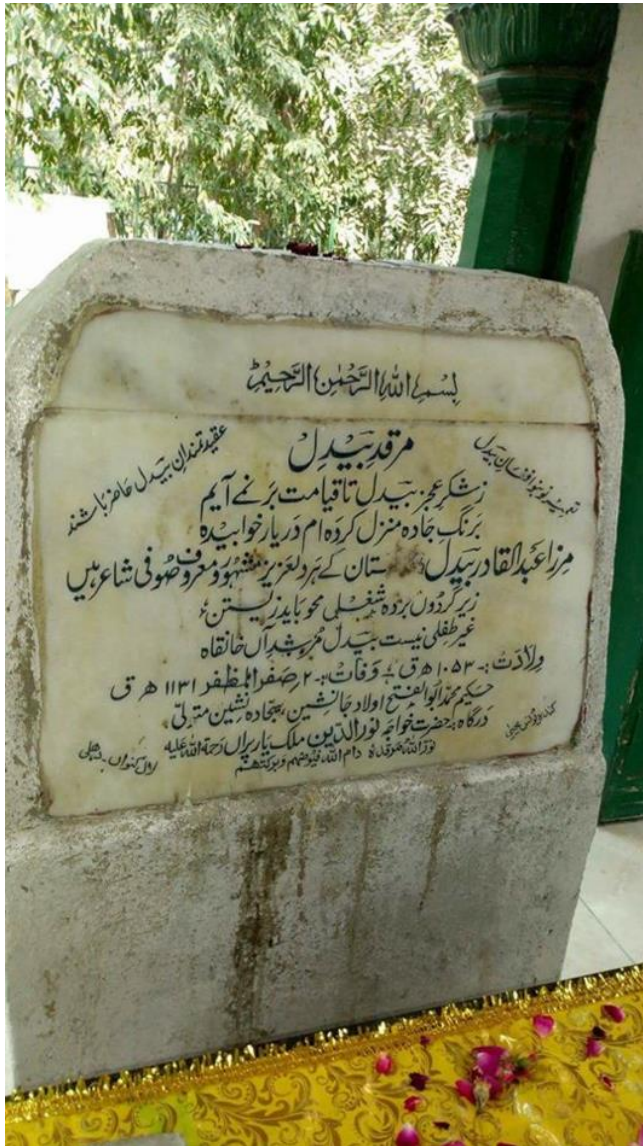 بِسْمِ اللهِ الرَّحْمٰنِ الرَّحِيْمِ
مرقدِ بَیدِل
عقیدتمندانِ بیدل حاضر باشند
زشکرِ عجز بیدل تا قیامت برنمے آیم
برنگِ جادہ منزل کردہ ام در یار خوابیدہ
مرزا عَبدالقادر بَیدل ستان کے ہردلعزیز مشہور و معروف صُوفی شاعر ہیں
زیرِ گردوں بردہ شغلی محو باید زیستن
غیرِ طفلی نیست بیدل مرشدِ آں خانقاہ
ولادت :۔ ۱۰۵۳ ھ ق ؛ وفات :۔ ۲ صفر المظفر ۱۱۳۱ ھ ق
حکیم محمد ابوالفتح اولاد جانشین، سجادہ نشین متولی
درگاہ :۔ حضرت خواجہ نورالدین ملک یار پراں رحمۃ اللہ علیہ
نوّر اللہ مرقدہ دام اللہ فیوضہم وبرکتہم